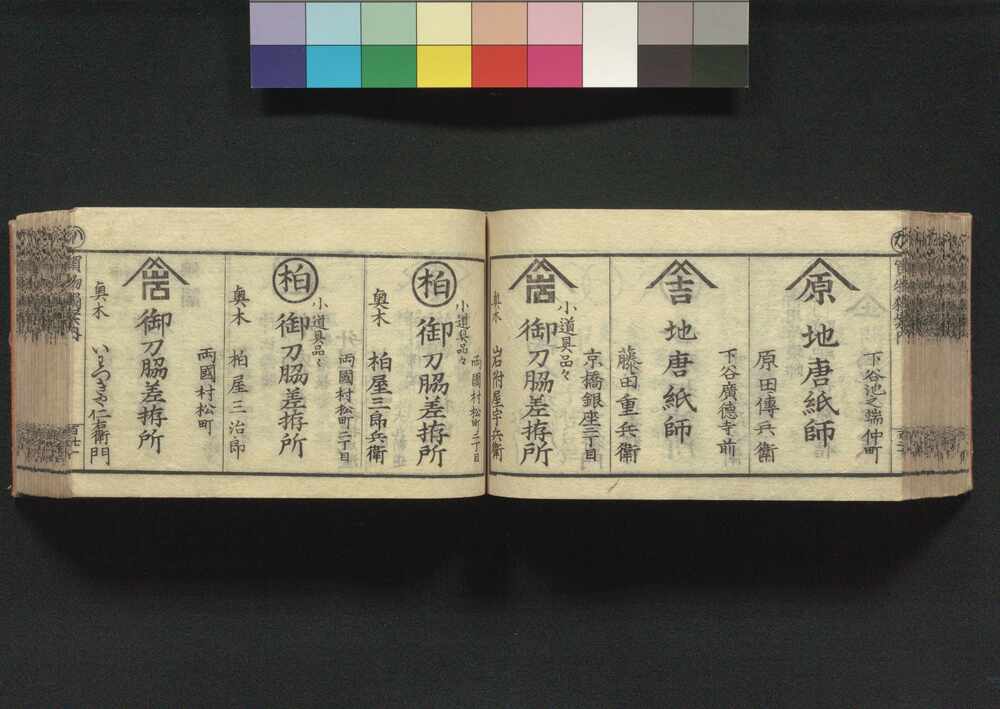 下谷池之端仲町
原
地唐紙師
原田傳兵衛
下谷廣徳寺前
吉
地唐紙師
藤田重兵衛
京橋銀座三丁目
小道具品々
御刀脇差拵所
奥木
岩附屋宇兵衛
両國村松町二丁目
小道具品々
柏
御刀脇差拵所
奥木
柏屋三郎兵衛
両國村松町二丁目
小道具品々
柏
御刀脇差拵所
奥木
柏屋三治郎
両國村松町
御刀脇差拵所
奥木
いわつきや仁右衛門